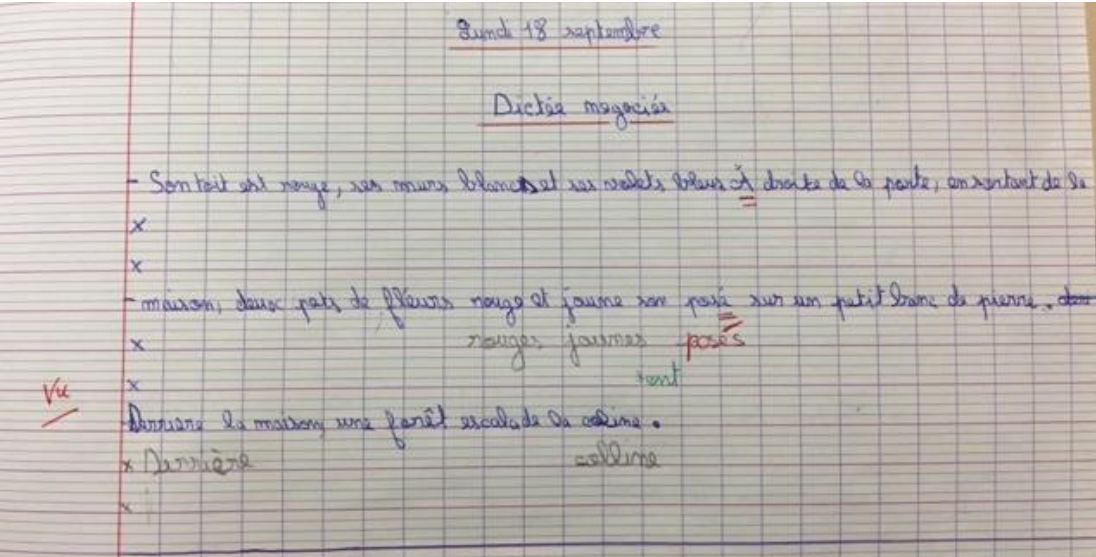 Lundi 18 septembre
Dictée negociée
- Son toit est rouge, ses murs blancs et ses volets bleus À droite de la porte, en sortant de la
x
x
- maison, deux pots de fleurs rouge et jaune son posé sur un petit banc de pierre.
x rouges jaunes posés
x sont
Vu
Derriere la maison une forêt escalade la coline.
x Derrière colline
x